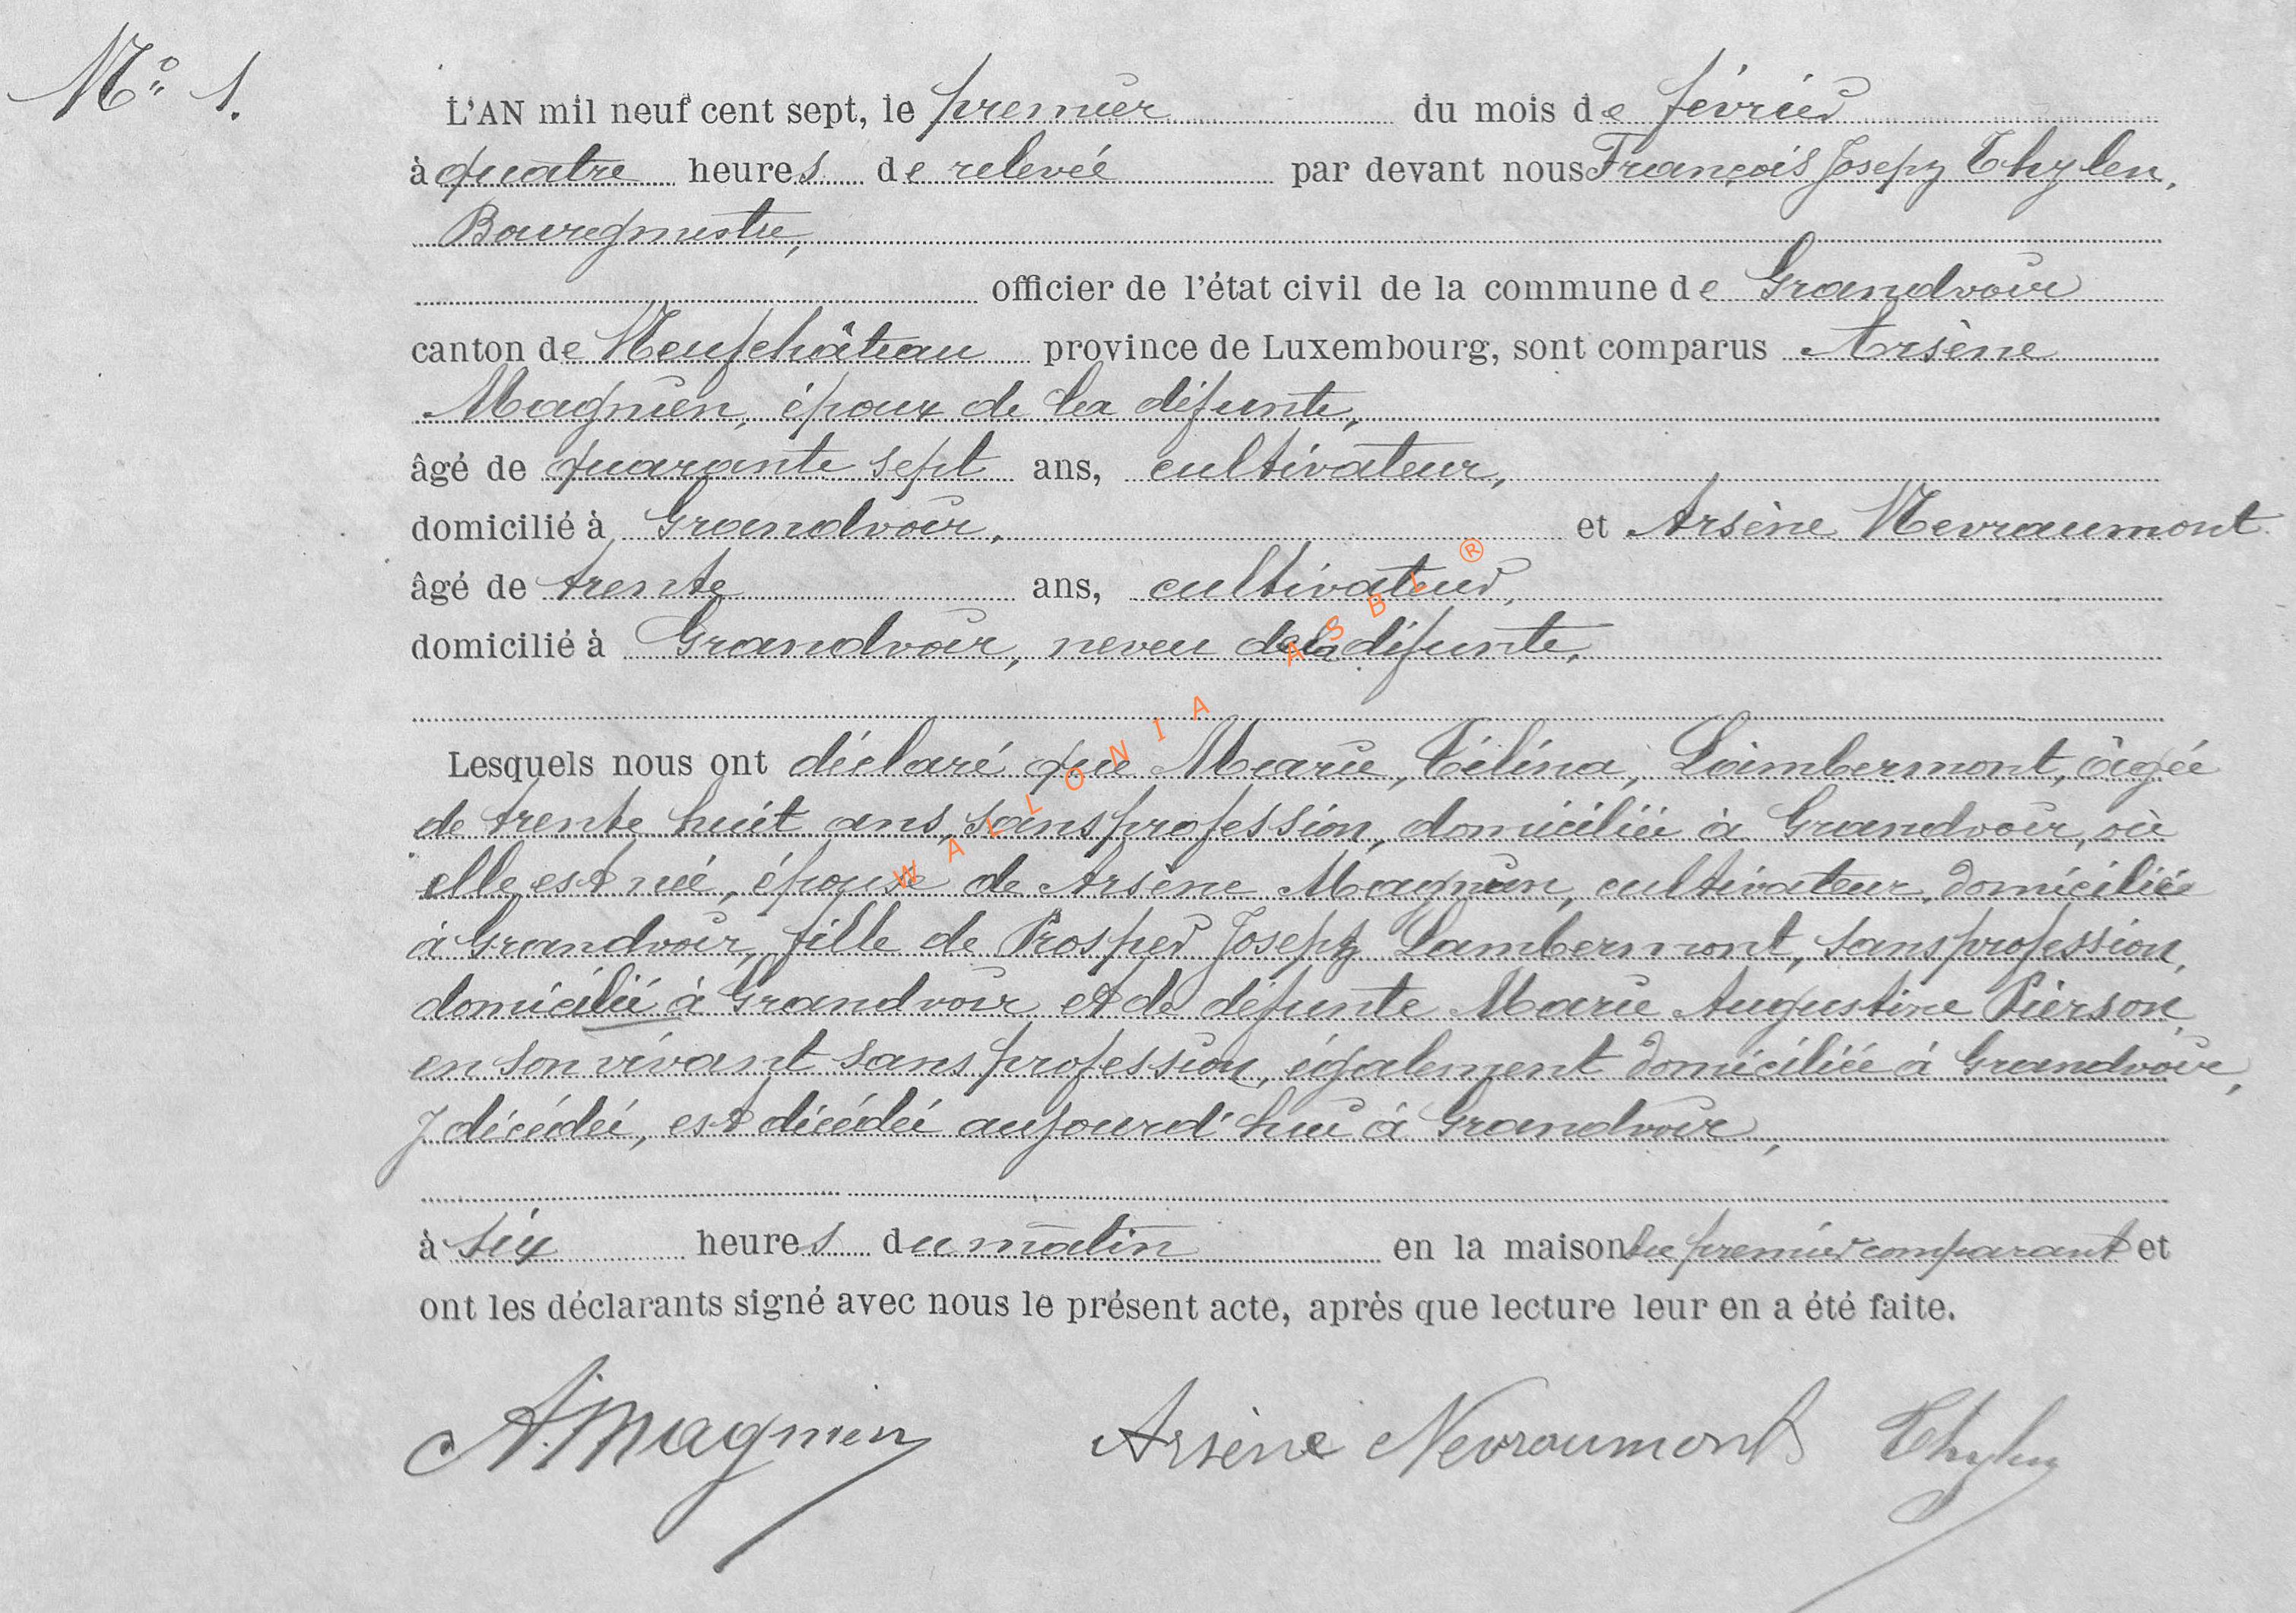 N° 1.
L'AN mil neuf cent sept, le premier du mois de février
à quatre heures de relevée par devant nous François Joseph Thylen,
Bourgmestre,
officier de l'état civil de la commune de Grandvoir
canton de Neufchâteau province de Luxembourg, sont comparus Arsène
Magnien, époux de la défunte,
âgé de quarante sept ans, cultivateur,
domicilié à Grandvoir, et Arsène Nevraumont
âgé de trente ans, cultivateur,
domicilié à Grandvoir, neveu de la défunte,
Lesquels nous ont déclaré que Marie, Célina, Lambermont, âgée
de trente huit ans, sans profession, domiciliée à Grandvoir, où
elle est née, épouse de Arsène Magnien, cultivateur, domiciliée
à Grandvoir, fille de Prosper Joseph Lambermont, sans profession,
domicilié à Grandvoir et de défunte Marie Augustine Pierson,
en son vivant sans profession, également domiciliée à Grandvoir,
y décédée, est décédée aujourd'hui à Grandvoir,
à six heures du matin en la maison du premier comparant et
ont les déclarants signé avec nous le présent acte, après que lecture leur en a été faite.
A. Magnien Arsène Nevraumont Thylen
WALLONIA ASBL ®